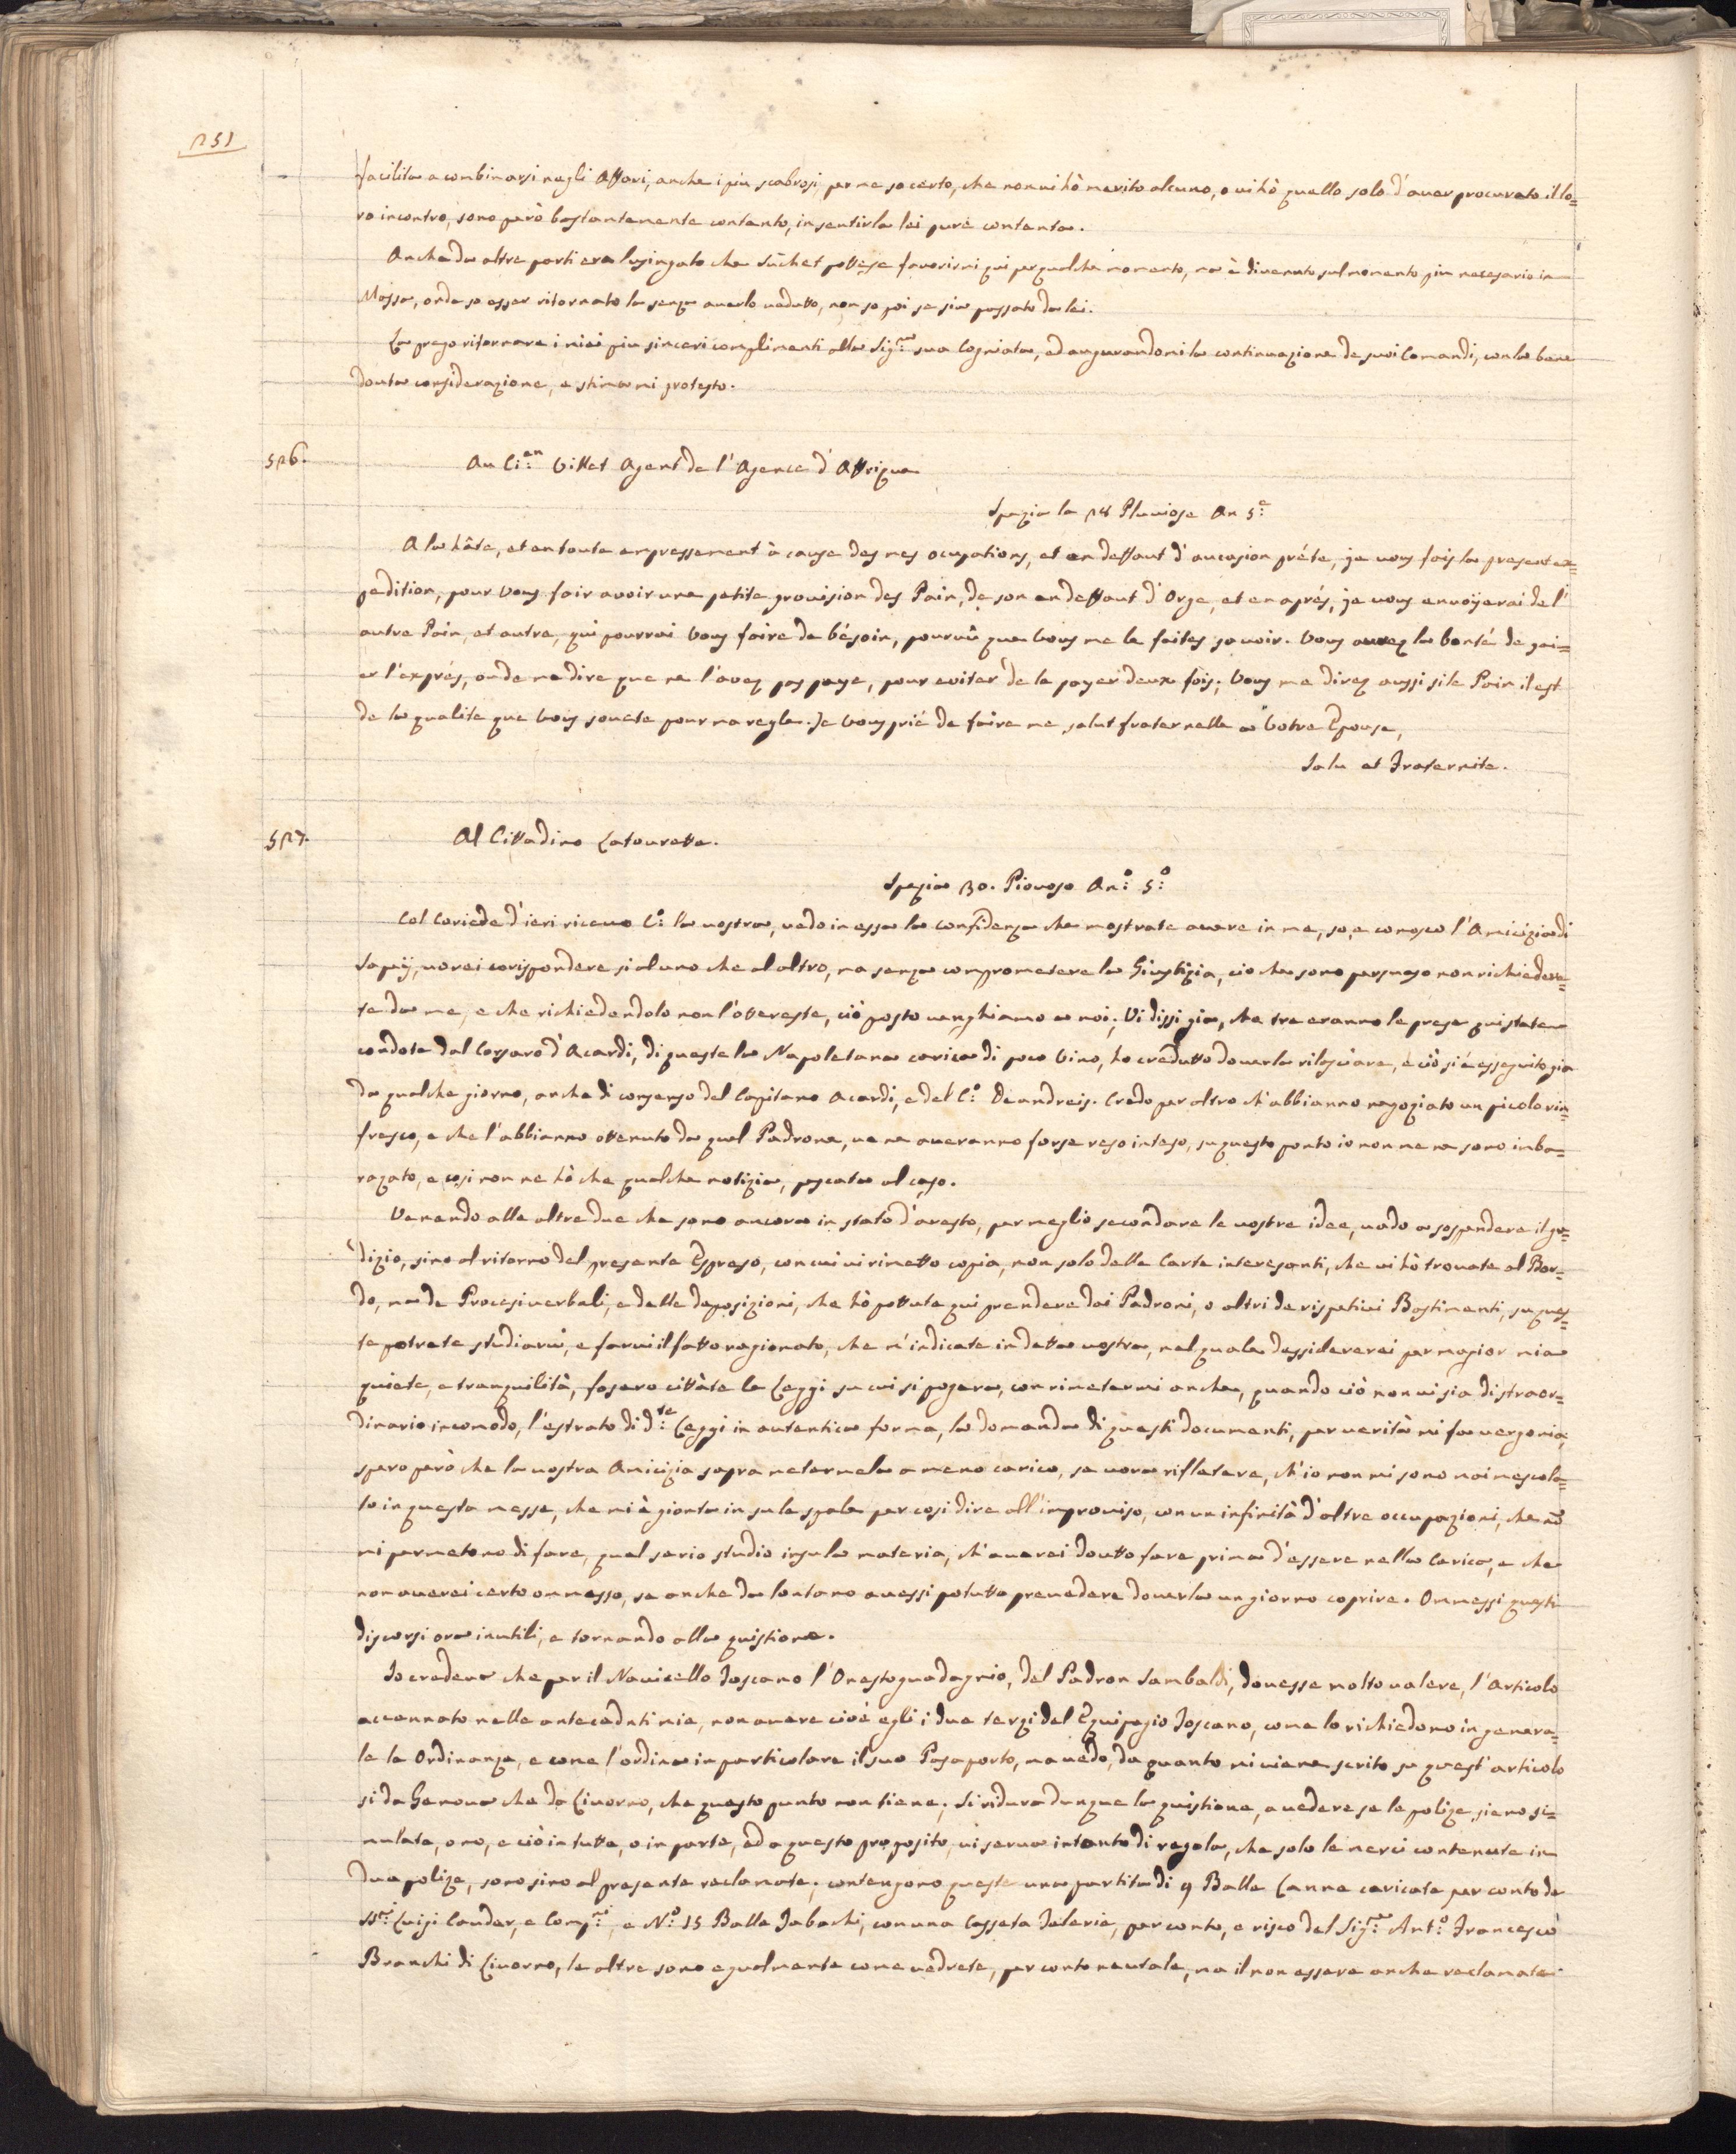 251
facilita a combinarsi negli Affari, anche i più scabrosi, per me so certo, che non vi hò merito alcuno, o vi hò quello solo d'aver procurato il lo=
ro incontro, sono però bastantemente contento, in sentirla lei pure contenta.
Anche da altre parti era lusingato che Suchet potesse favorirmi qui per qualche momento, ma è divenuto sul momento più necesario in
Massa, onde so esser ritornato la senza averlo veduto, non so poi se sia passato da lei.
La prego ritornare i miei più sinceri complimenti alla Sig:ra sua Cogniata, ed augurandomi la continuazione de suoi Comandi, con la ben
douta considerazione, e stima mi protesto.
526.
Au Ci:en Villet Agent de l'Agence d'Affrique
Spezia le 28 Pluviose An 5:e
A la hâte, et en toute empressement à cause des mes ocupations, et en deffaut d'aucasion préte, je vous fais la present ex=
pedition, pour Vous fair avoir une petite provision des Pain, de son en deffaut d'Orge, et en aprés, je vous envoÿerai de l'
autre Pain, et autre, qui pourrai Vous faire de bésoin, pourvû que Vous me le faites savoir. Vous aurez la bonté de pai=
er l'exprés, on de me dire que ne l'avez pas paye, pour eviter de le payer deux fois; Vous me direz aussi si le Pain il est
de la qualite que Vous souete pour ma regle. Je Vous prié de faire me salut fraternelle a Votre Epouse,
Salu et Fraternite.
527.
Al Cittadino Latourette.
Spezia 30. Piovoso An:o 5:o
Col Coriede d'ieri ricevo C:o la vostra, vedo in essa la confidenza che mostrate avere in me, so, e conosco l'Amicizia di
Sapeÿ, vorei corispondere si al uno che al altro, ma senza comprometere la Giustizia, cio che sono persuaso non richiedere=
te da me, e che richiedendolo non l'ottereste, ciò posto venghiamo a noi; Vi dissi già, che tre eranno le prese quistate
condote dal Corsaro d'Acardi, di queste la Napoletana carica di poco Vino, ho credutto doverla rilasciare, e ciò si é esseguito già
da qualche giorno, anche di consenso del Capitano Acardi, e del C:o Deandreis. Credo per altro ch'abbianno negoziato un picolo rin=
fresco, e che l'abbianno otenuto da quel Padrone, ve ne averanno forse reso inteso, su questo ponto io non me ne sono inba=
razato, e così non ne hò che qualche notizia, pescata al caso.
Venendo alle altre due che sono ancora in stato d'aresto, per meglio secondare le vostre idee, vado a sospendere il giu=
dizio, sino al ritorno del presente Espreso, con cui vi rimetto copia, non solo delle Carte interesanti, che vi hò trovate al Bor=
do, ma de Procesi verbali, e delle deposizioni, che hò pottute qui prendere dai Padroni, o altri de rispetivi Bastimenti, su ques=
te potrete studiarvi, e farvi il fatto ragionato, che m'indicate in detta vostra, nel quale dessidererei per magior mia
quiete, e tranquilità, fosero cittàte le Leggi su cui si pogera, con rimetermi anche, quando ciò non vi sia di straor=
dinario incomodo, l'estrato di d:te Leggi in autentica forma, la domanda di questi documenti, per verità mi fa vergonia,
spero però che la vostra Amicizia sapra metermela a meno carico, se vora rifletere, ch'io non mi sono mai mescola=
to in questa messe, che mi è gionta in su le spale per cosi dire all'improviso, con un infinità d'altre occupazioni, che nõ
mi permetono di fare, quel serio studio in su la materia, ch'averei doutto fare prima d'essere nella Carica, e che
non averei certo ommesso, se anche da lontano avessi potutto prevedere doverla un giorno coprire. Ommessi questi
discorsi ora inutili, e tornando alla quistione.
Io credeva che per il Navicello Toscano l'Onesto guadagnio, del Padron Sambaldi, dovesse molto valere, l'Articolo
accennato nelle antecednti mie, non avere cioè egli i due terzi del Equipagio Toscano, come lo richiedono in genera=
le le Ordinanze, e come l'ordina in particolare il suo Pasaporto, ma vedo, da quanto mi viene scrito su quest'articolo
si da Genova che da Livorno, che questo punto non tiene. Si ridura dunque la quistione, a vedere se le polize sieno si=
mulate, o no, e ciò in tutto, o in parte, ed a questo proposito, vi serva intanto di regola, che solo le merci contenute in
due polize, sono sino al presente reclamate; contengono queste una partita di 9 Balle Canne caricate per conto de
SS:ri Luigi Cauder, e Comp:ni, e N:o 15 Balle Tabachi, con una Casseta Telerie, per conto, e risco del Sig:re Ant:o Francesco
Branchi di Livorno, le altre sono egualmente come vedrete, per conto neutale, ma il non essere anche reclamate